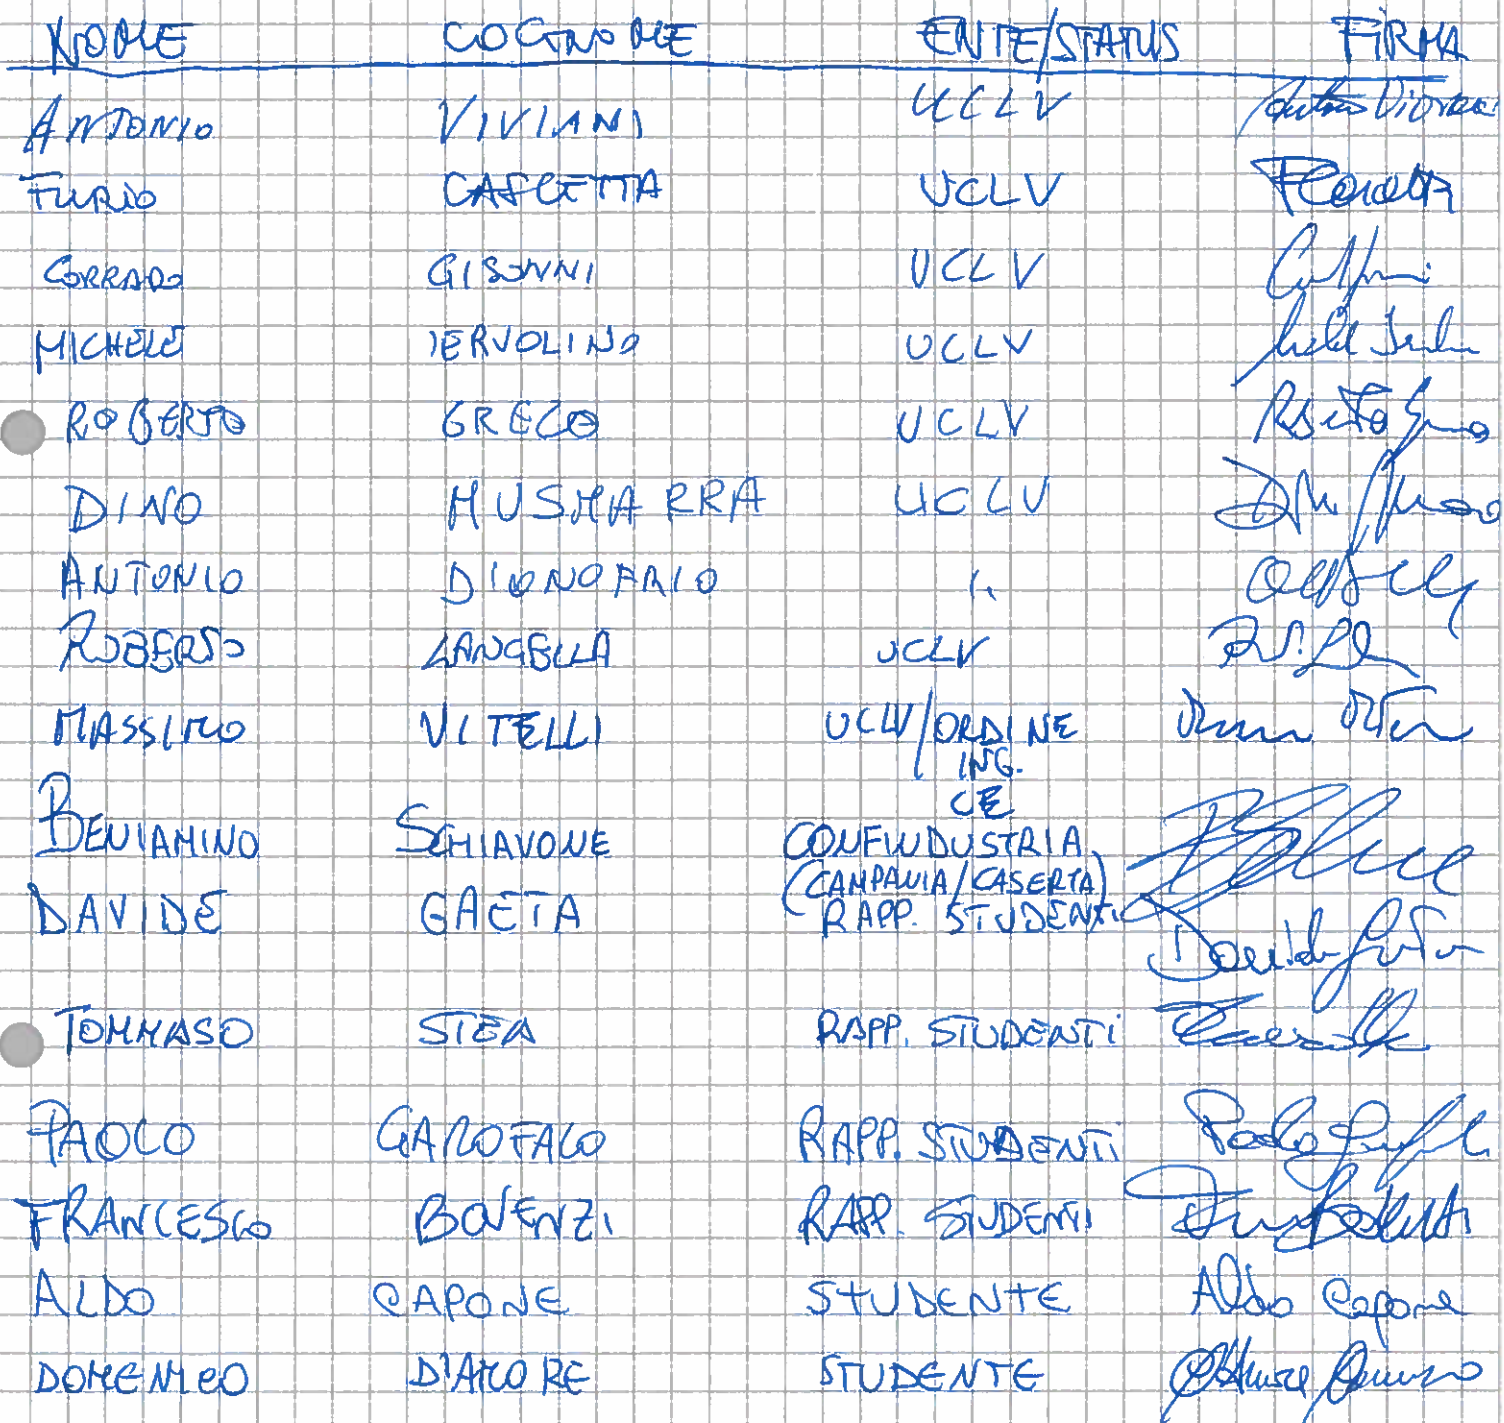 NOME COGNOME ENTE/STATUS FIRMA
ANTONIO VIVIANI UCLV
FURIO CASCETTA UCLV
CORRADO GISONNI UCLV
MICHELE IERVOLINO UCLV
ROBERTO GRECO UCLV Roberto Greco
DINO MUSMARRA UCLV
ANTONIO D'ONOFRIO "
ROBERTO ZANGELLA UCLV
MASSIMO VITELLI UCLV/ORDINE
ING.
CE
BENIAMINO SCHIAVONE CONFINDUSTRIA
(CAMPANIA/CASERTA)
DAVIDE GAETA RAPP. STUDENTI Davide Gaeta
TOMMASO STEA RAPP. STUDENTI
PAOLO GAROFALO RAPP. STUDENTI Paolo
FRANCESCO BOVENZI RAPP. STUDENTI
ALDO CAPONE STUDENTE Aldo Capone
DOMENICO D'AMORE STUDENTE